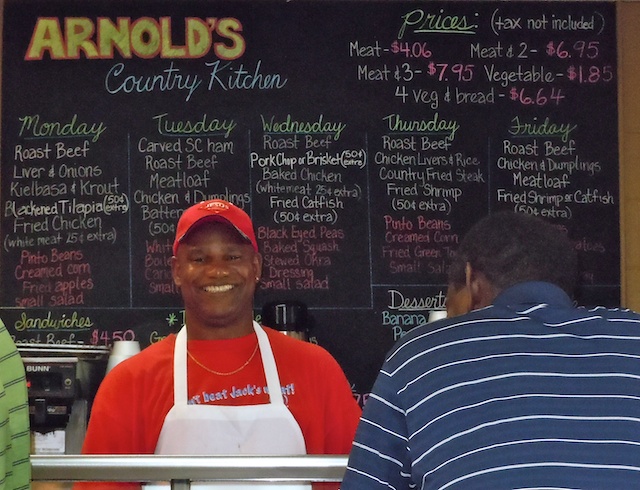 ARNOLD'S
Country Kitchen
Prices: (tax not included)
Meat-$4.06 Meat & 2- $6.95
Meat & 3- $7.95 Vegetable-$1.85
4 veg & bread- $6.64
Monday
Roast Beef
Liver & Onions
Kielbasa & Krout
Blackened Tilapia (50¢ extra)
Fried Chicken
(white meat 25¢ extra)
Pinto Beans
Creamed corn
Fried apples
Small salad
Tuesday
Carved SC ham
Roast Beef
Meatloaf
Chicken & Dumplings
Wednesday
Roast Beef
Pork Chop or Brisket (50¢ extra)
Baked Chicken
(white meat 25¢ extra)
Fried Catfish
(50¢ extra)
Black Eyed Peas
Baked Squash
Stewed Okra
Dressing
Small salad
Thursday
Roast Beef
Chicken Livers & Rice
Country Fried Steak
Fried Shrimp
(50¢ extra)
Pinto Beans
Creamed Corn
Fried Green
Small
Friday
Roast Beef
Chicken & Dumplings
Meatloaf
Fried Shrimp or Catfish
(50¢ extra)
Sandwiches
Roast Beef - $4.50
Desserts
Banana
BUNN
beat Jack's